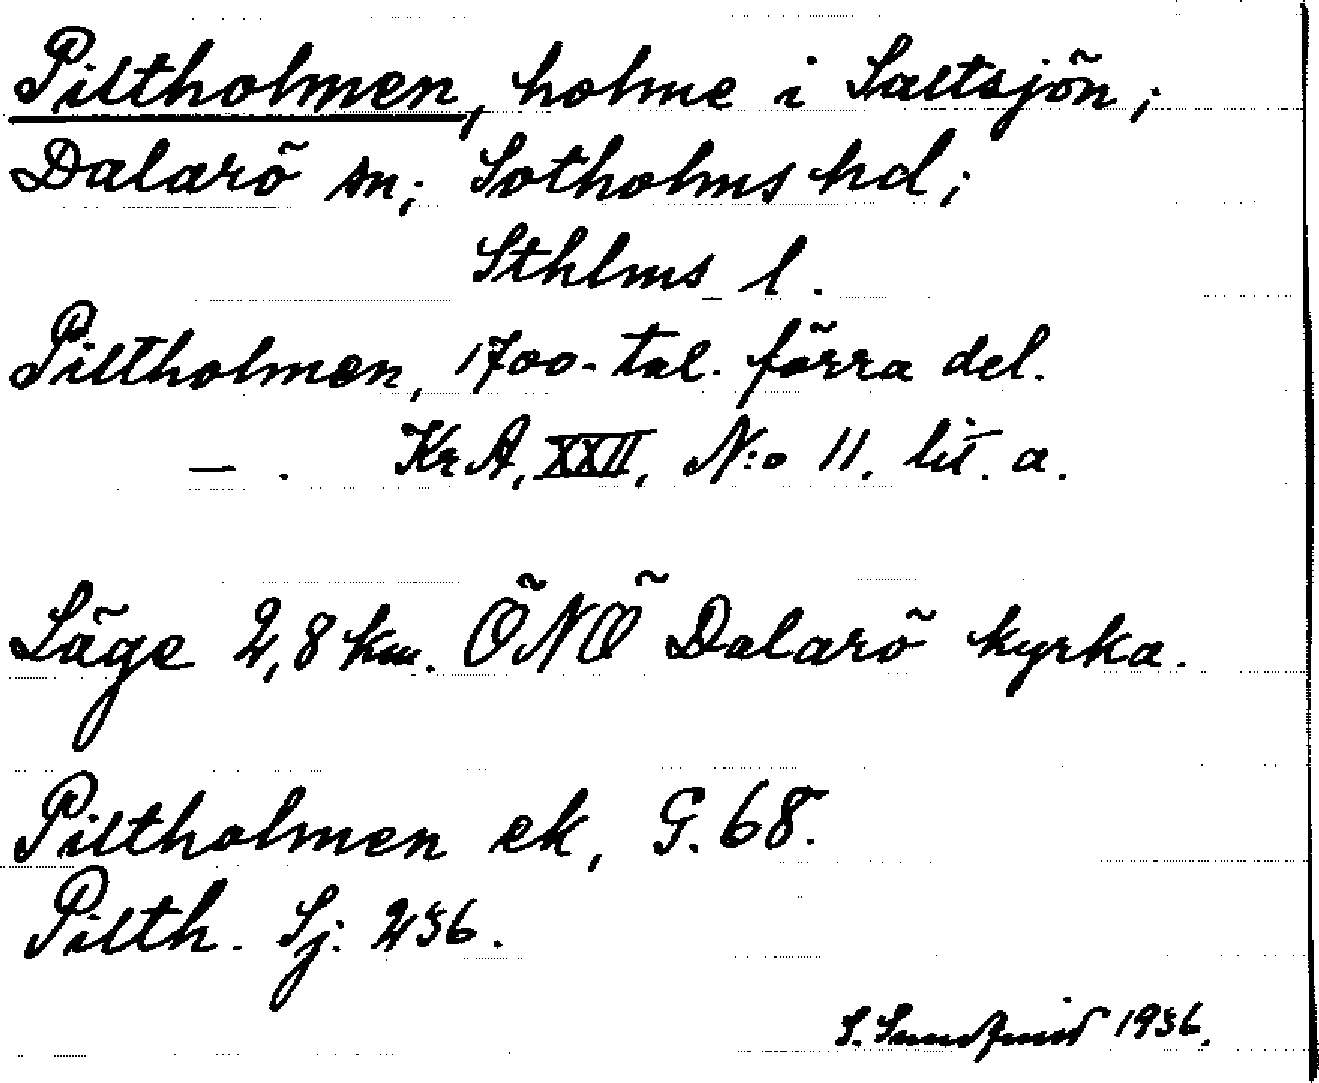 Piltholmen, holme i Saltsjön;
Dalarö sn; Sotholms hd;
Sthlms l.
Piltholmen, 1700-tal. förra del.
— . KrA, XXII, N:o 11. lit. a.
Läge 2,8 km. ÖNÖ Dalarö kyrka.
Piltholmen ek, G. 68.
Pilth. Sj: 236.
S. Sundqvist 1936.